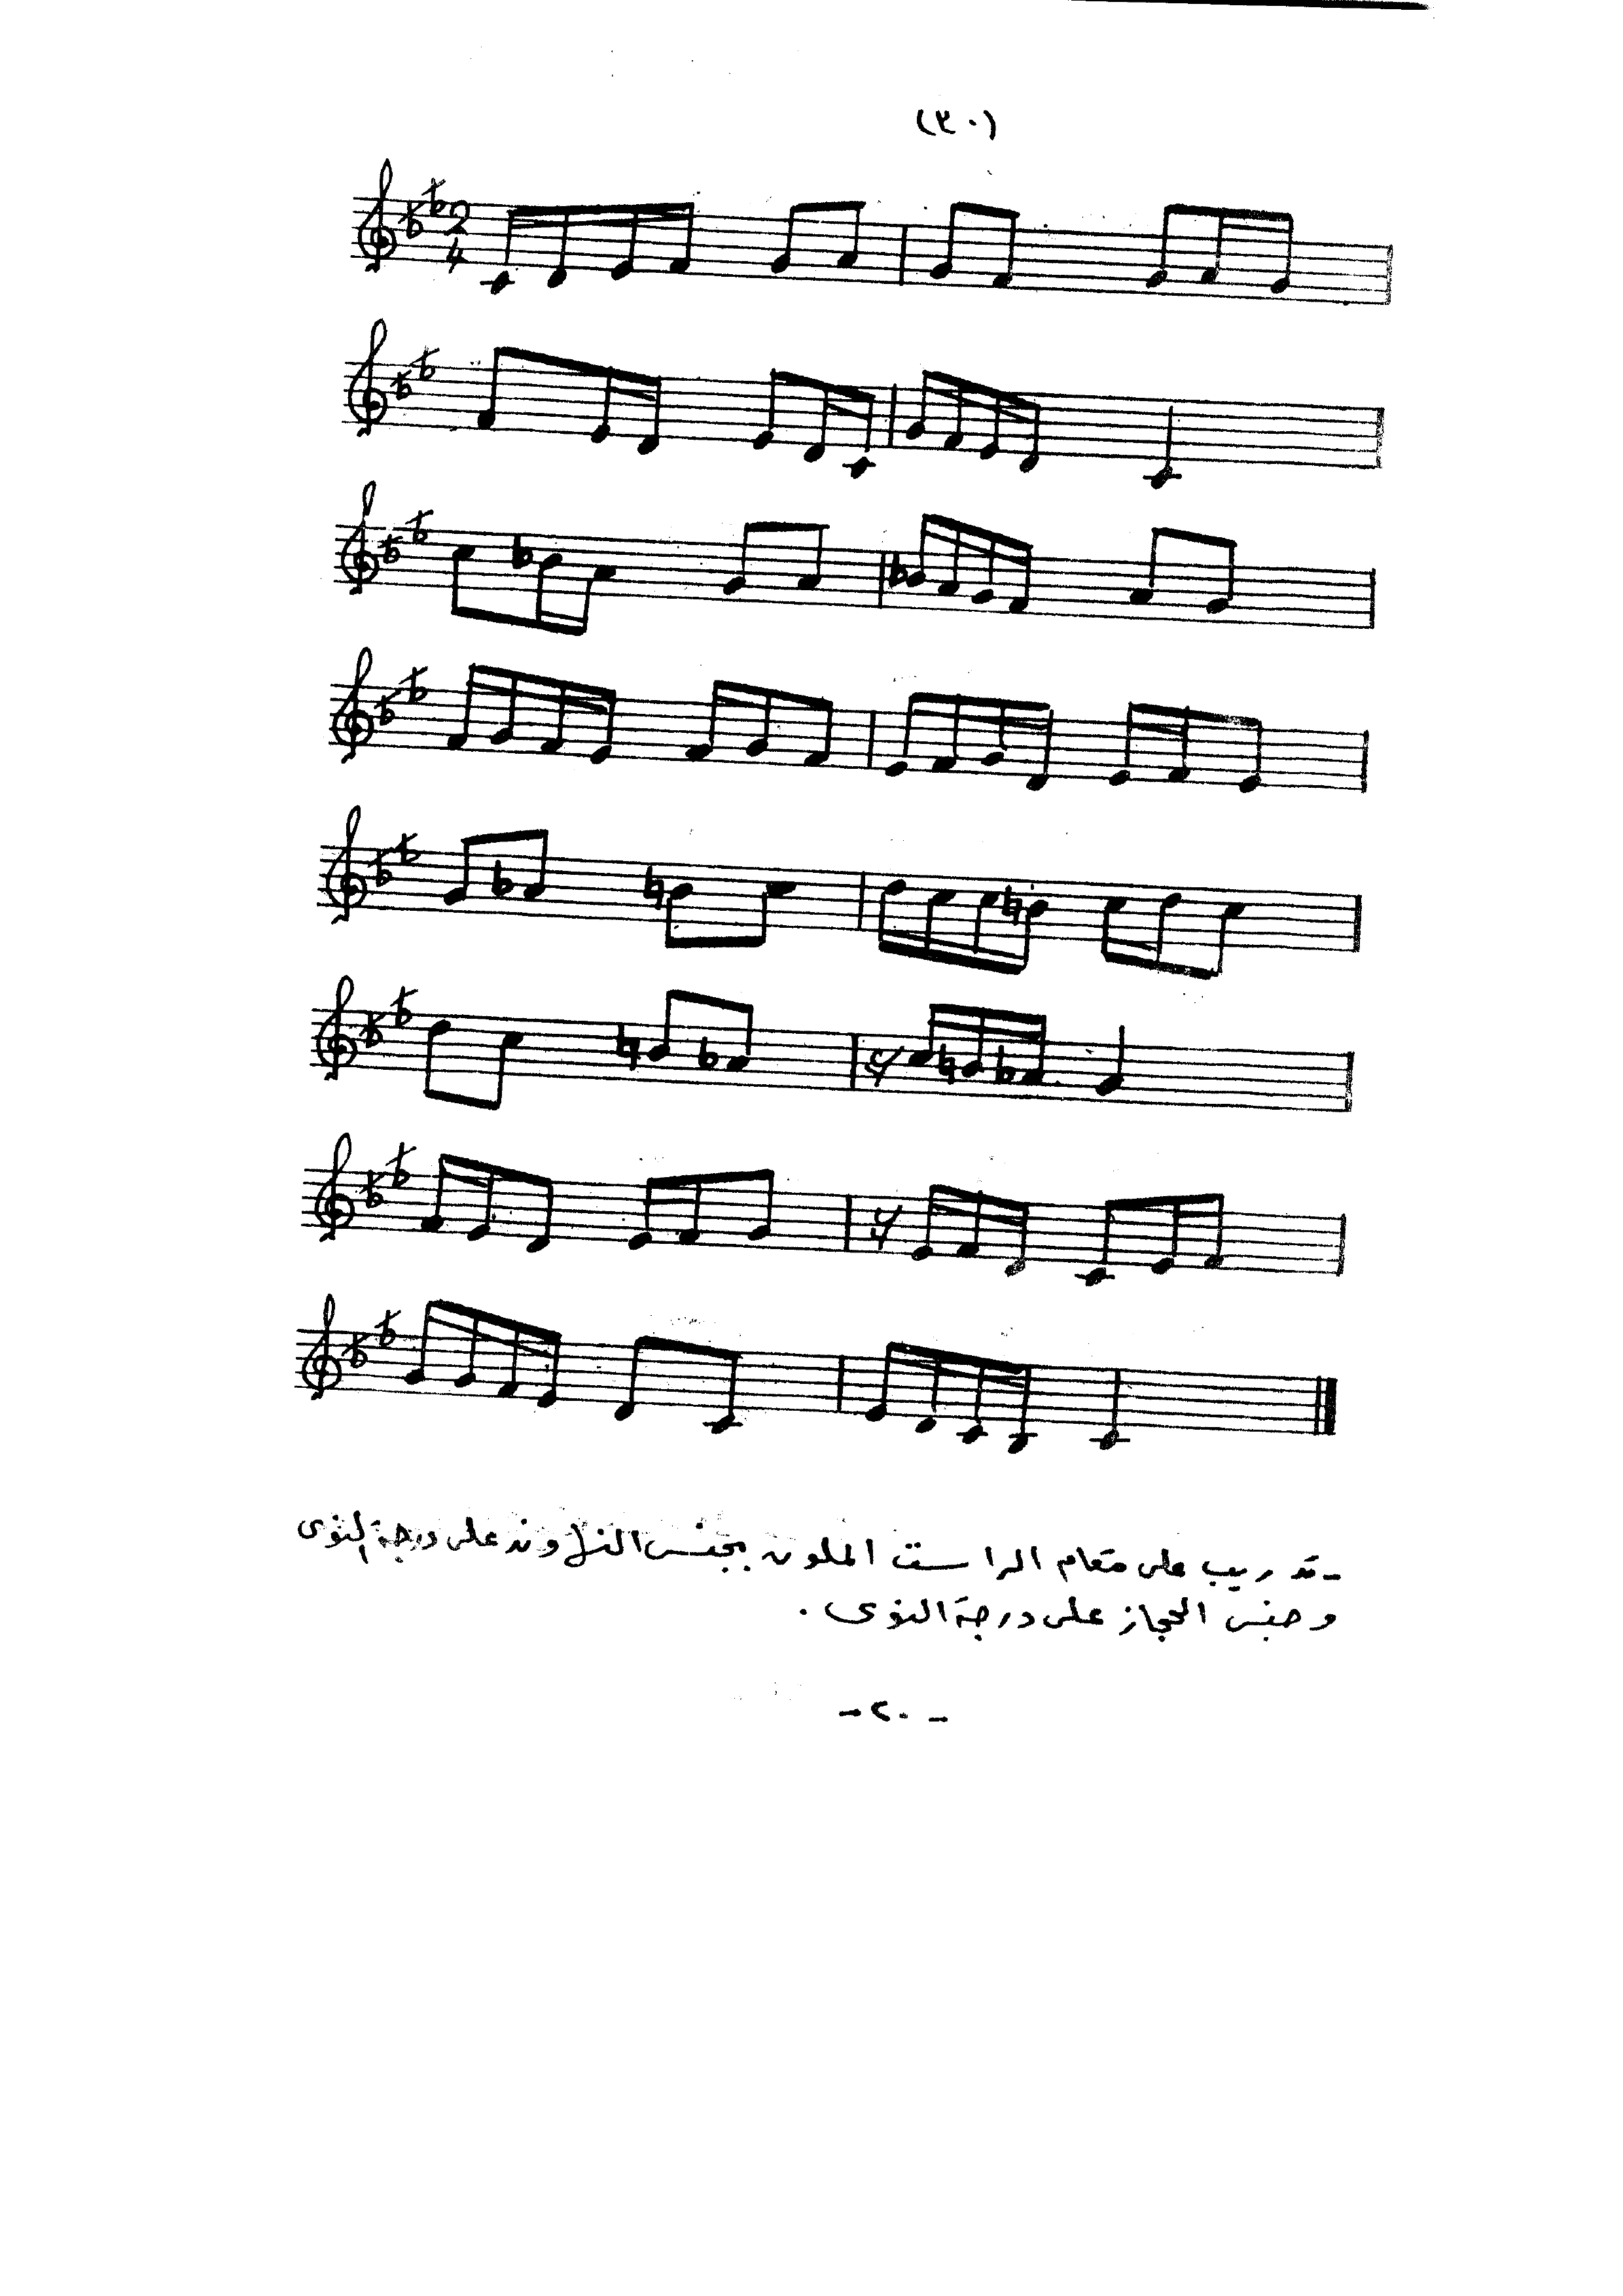 (٣٠)
2
4
- تدريب على مقام الراست الملون بجنس النهاوند على درجة النوى
وجنس الحجاز على درجة النوى .
- ٢٠ -